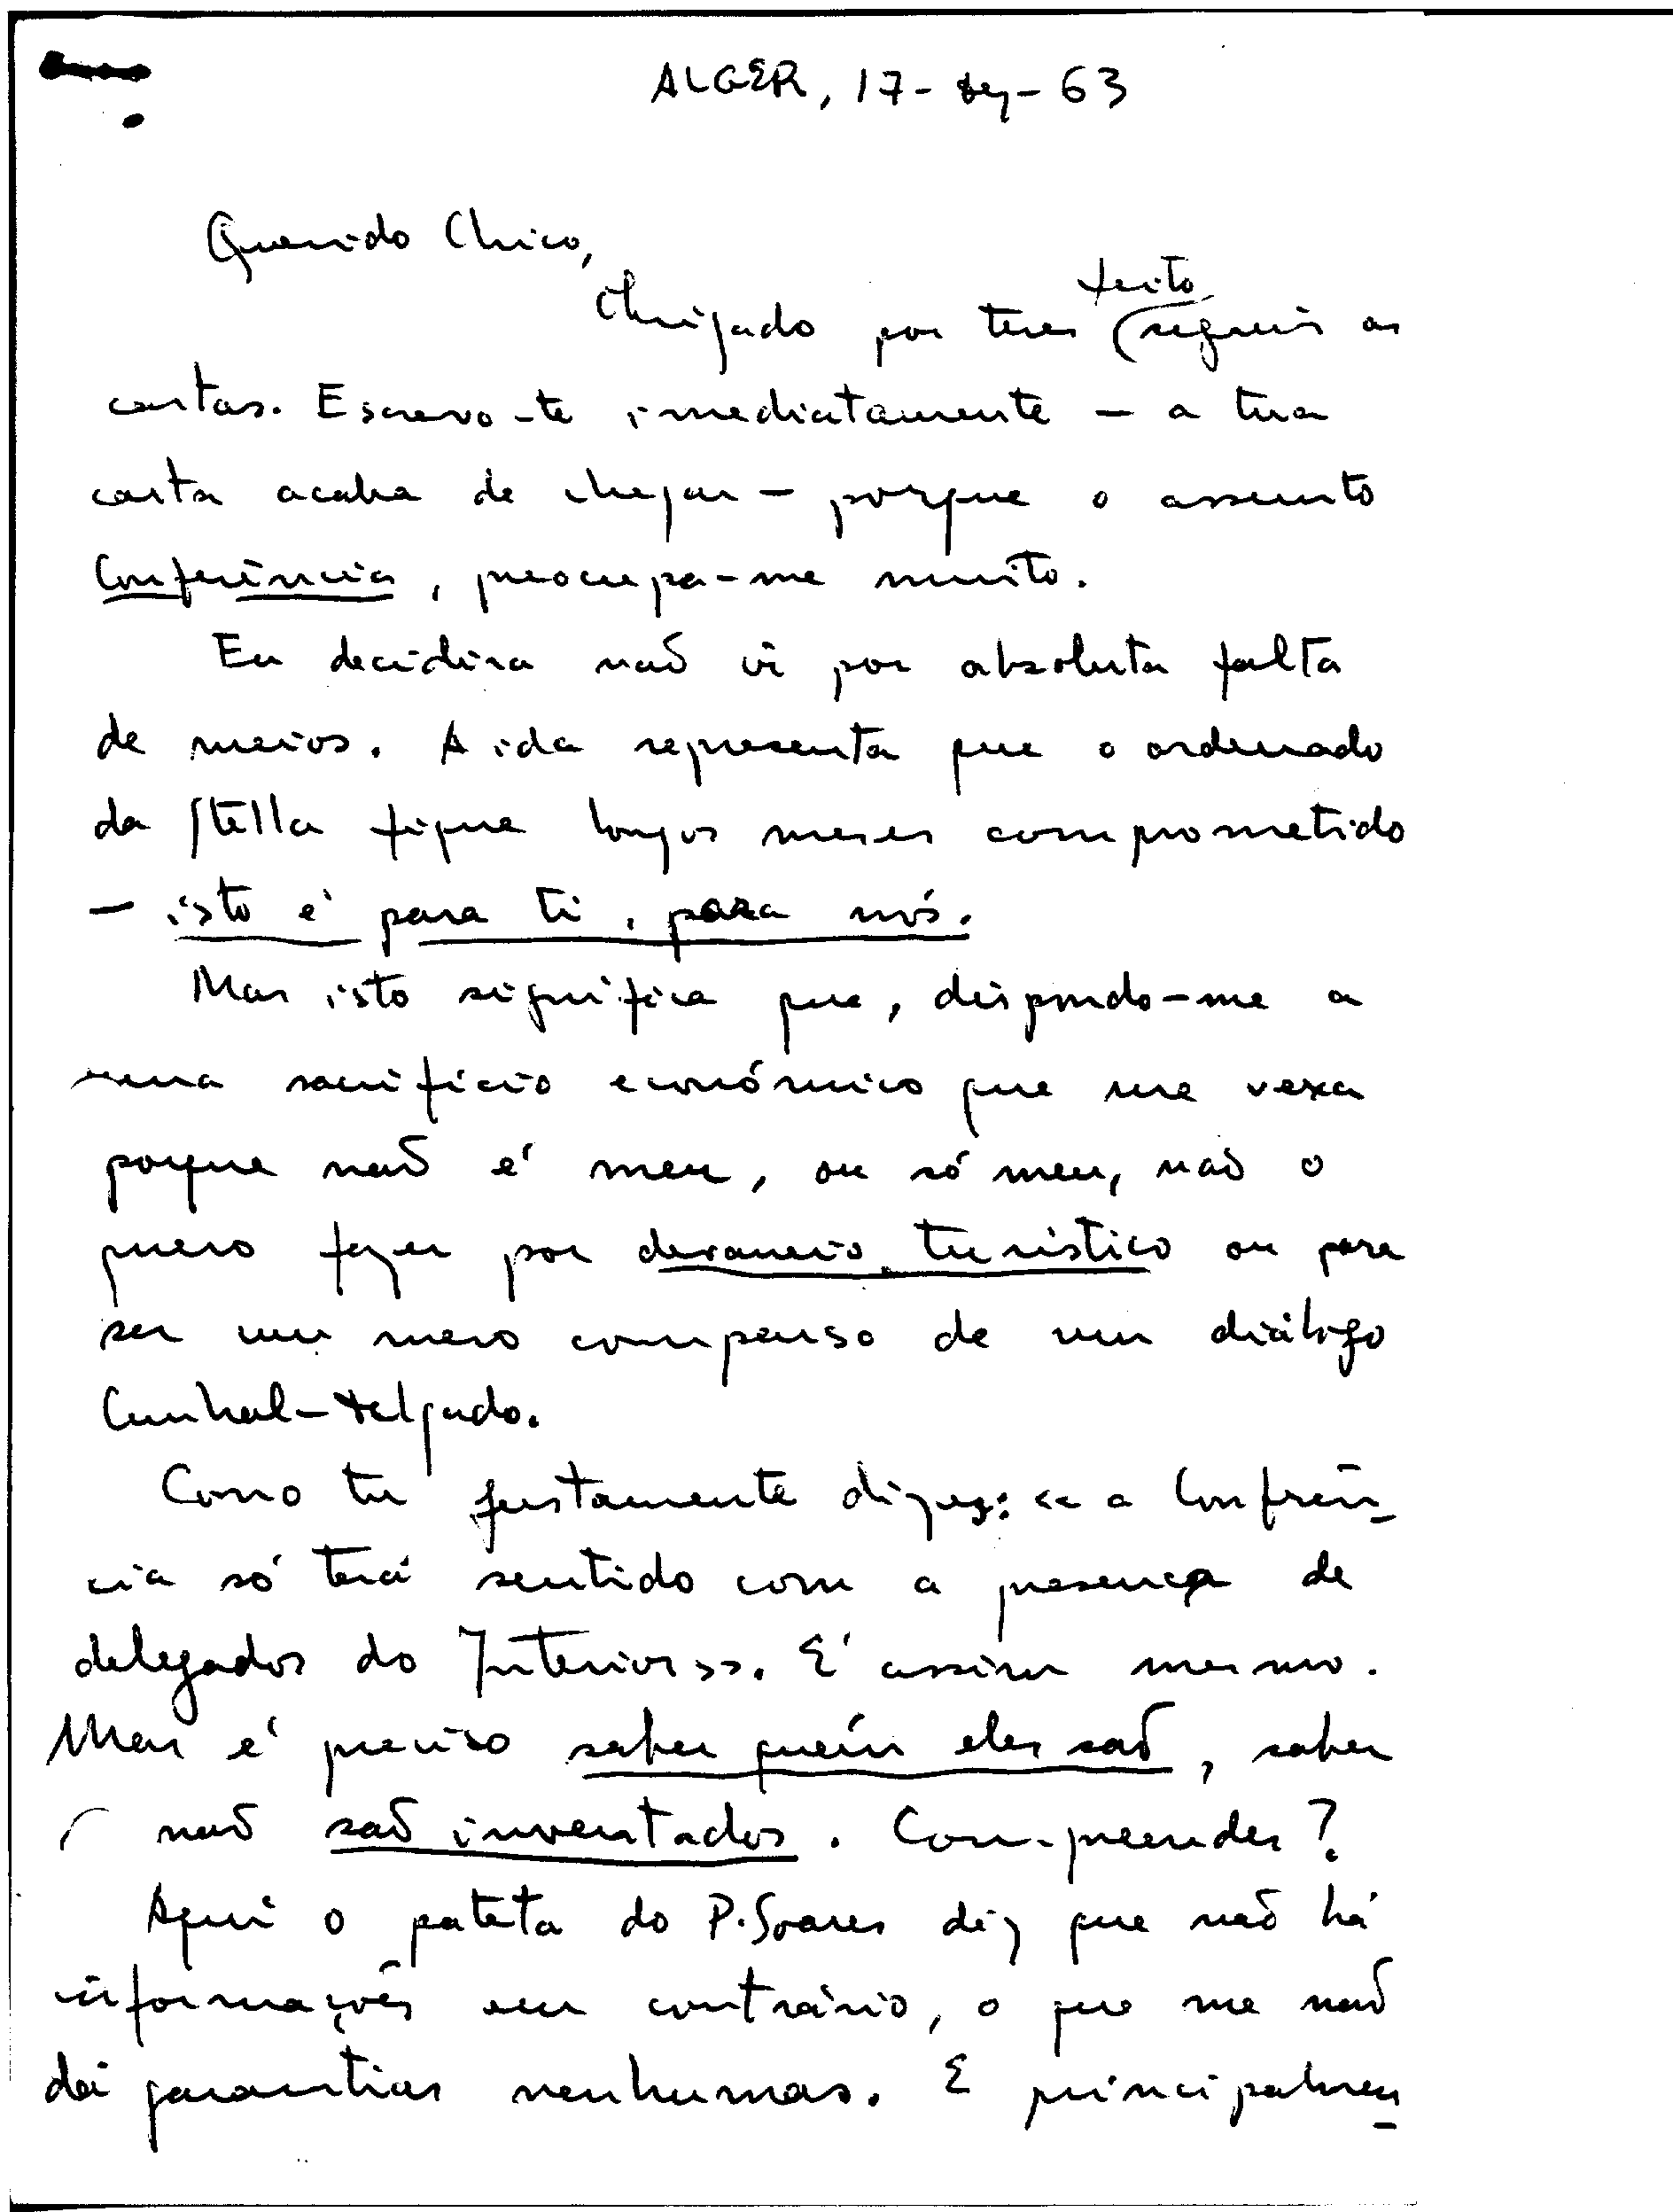 ALGER, 17-Dez-63
Querido Chico,
feito
Obrigado por teres seguir as
cartas. Escrevo-te imediatamente — a tua
carta acaba de chegar — porque o assunto
Conferência, preocupa-me muito.
Eu decidira não ir por absoluta falta
de meios. A ida representa que o ordenado
da Stella fique longos meses comprometido
— isto é para ti, para nós.
Mas isto significa que, dispondo-me a
uma sacrifício económico que me vexa
porque não é meu, ou só meu, não o
quero fazer por devaneio turístico ou para
ser um mero comparsa de um diálogo
Cunhal-Delgado.
Como tu justamente dizes: «a Conferên-
cia só terá sentido com a presença de
delegados do Interior». É assim mesmo.
Mas é preciso saber quém eles são, saber
não são inventados. Compreendes?
Aqui o pateta do P. Soares diz que não há
informações em contrário, o que me não
dá garantias nenhumas. E principalmen-